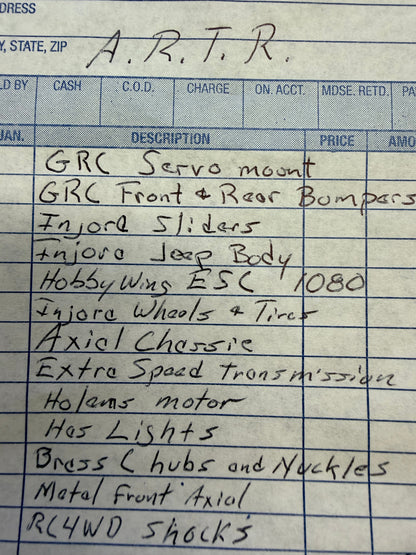 DRESS
Y, STATE, ZIP A.R.T.R.
LD BY CASH C.O.D. CHARGE ON. ACCT. MDSE. RETD. PA
AN. DESCRIPTION PRICE AMO
GRC Servo mount
GRC Front & Rear Bumpers
Injora Sliders
Injora Jeep Body
HobbyWing ESC 1080
Injora Wheels & Tires
Axial Chassie
Extra Speed transmission
Holams motor
Has Lights
Brass C hubs and Nuckles
Metal Front Axial
RC4WD Shocks